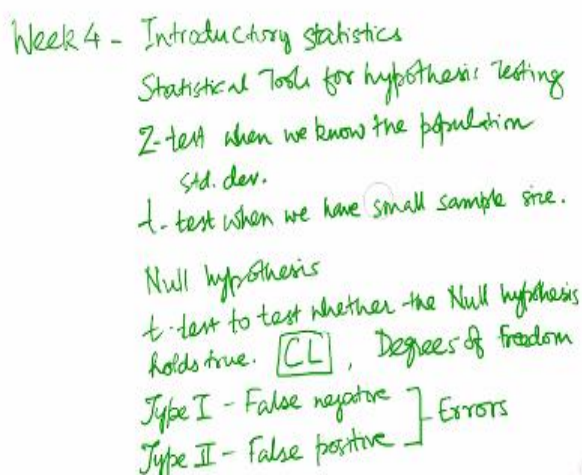 Week 4 - Introductory statistics
Statistical Tools for hypothesis Testing
Z-test when we know the population
std. dev.
t-test when we have small sample size.
Null hypothesis
t-test to test whether the Null hypothesis
holds true. CL, Degrees of freedom
Type I - False negative
Type II - False positive ] - Errors